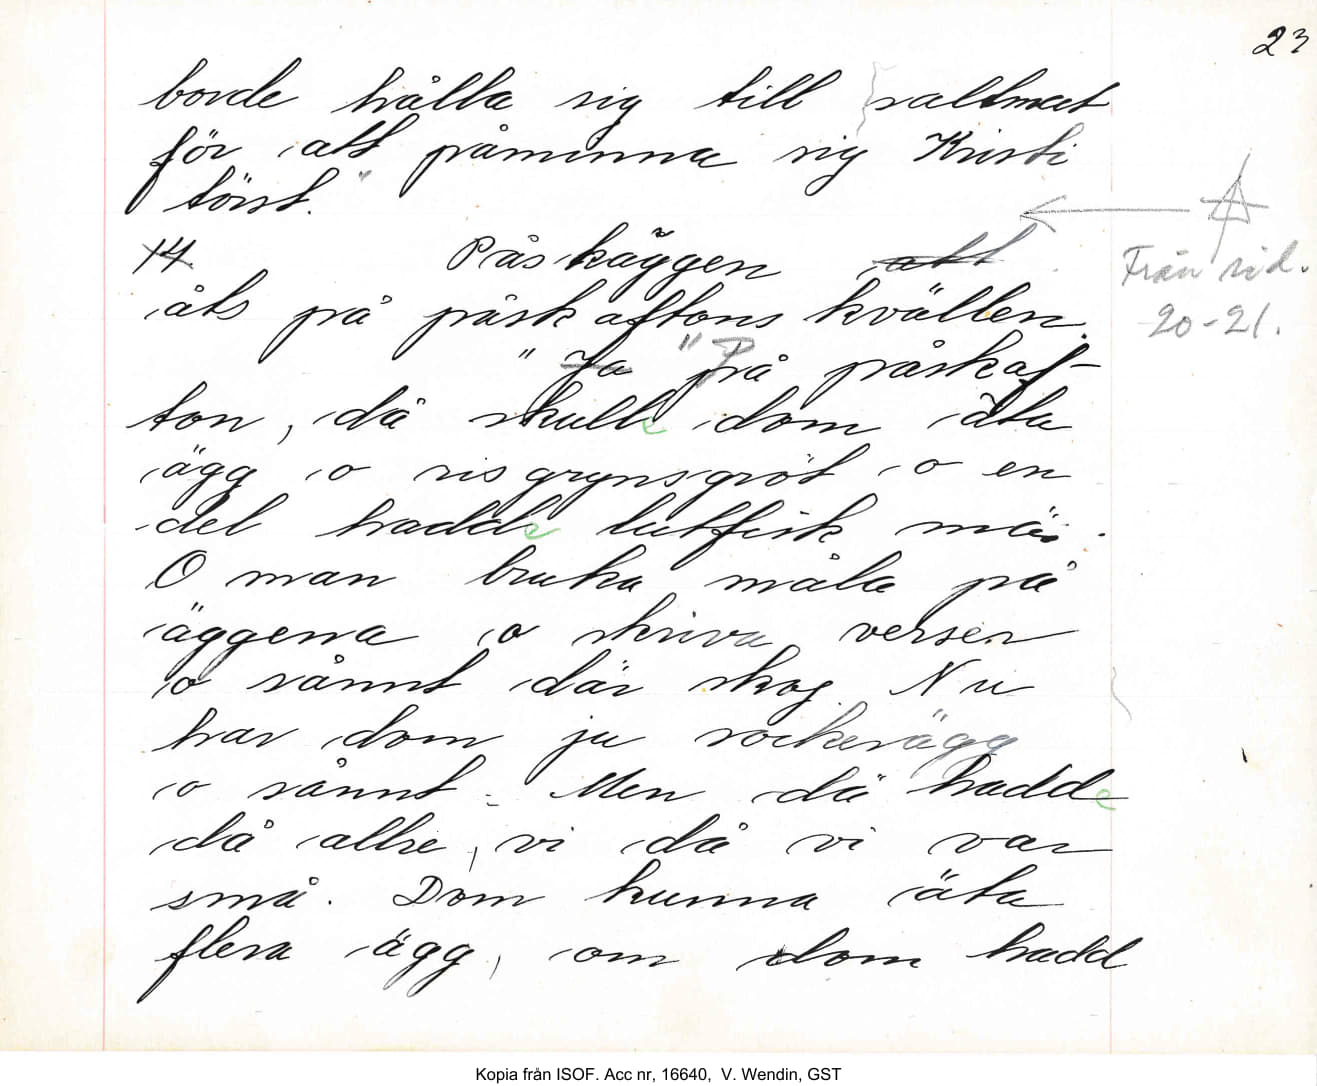 23
borde hålla sig till saltmat
för att påminna sig Kristi
törst."
14. Påskäggen att
åts på påskaftons kvällen.
Från sid.
20-21.
"Ja "På påskaf-
ton, då skulle dom äta
ägg o risgrynsgröt o en
del hadde lutfisk mä.
O man bruka måla på
äggena o skriva verser
o sånnt där skoj. Nu
har dom ju sockerägg
o sånnt. Men dä hadde
då alke, vi då vi var
små. Dom kunna äta
flera ägg, om dom hadd
Kopia från ISOF. Acc nr, 16640, V. Wendin, GST